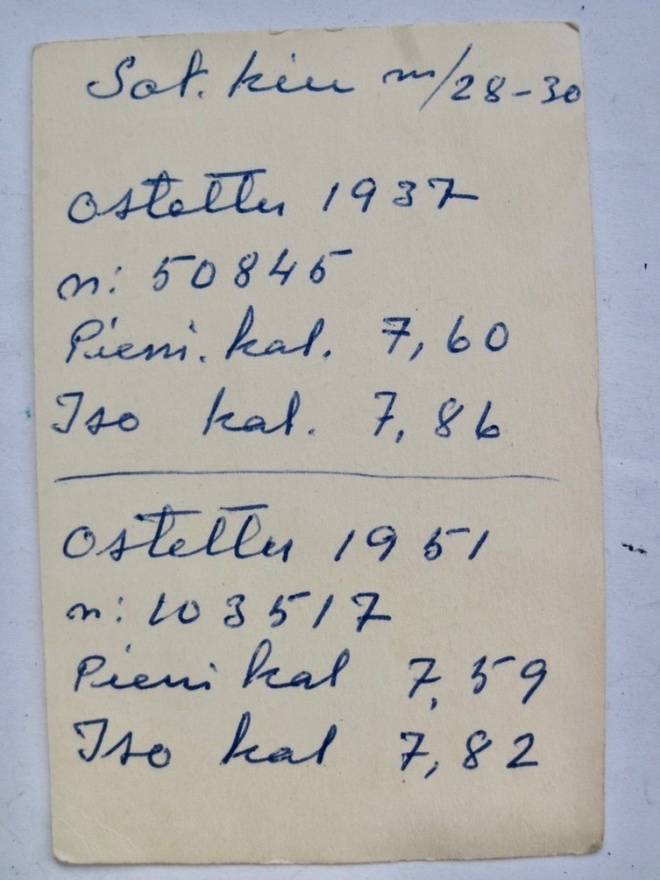 Sot. kiv m/28-30
Ostettu 1937
n: 50845
Pieni. kal. 7,60
Iso kal. 7,86
Ostettu 1951
n: 103517
Pieni kal 7,59
Iso kal 7,82